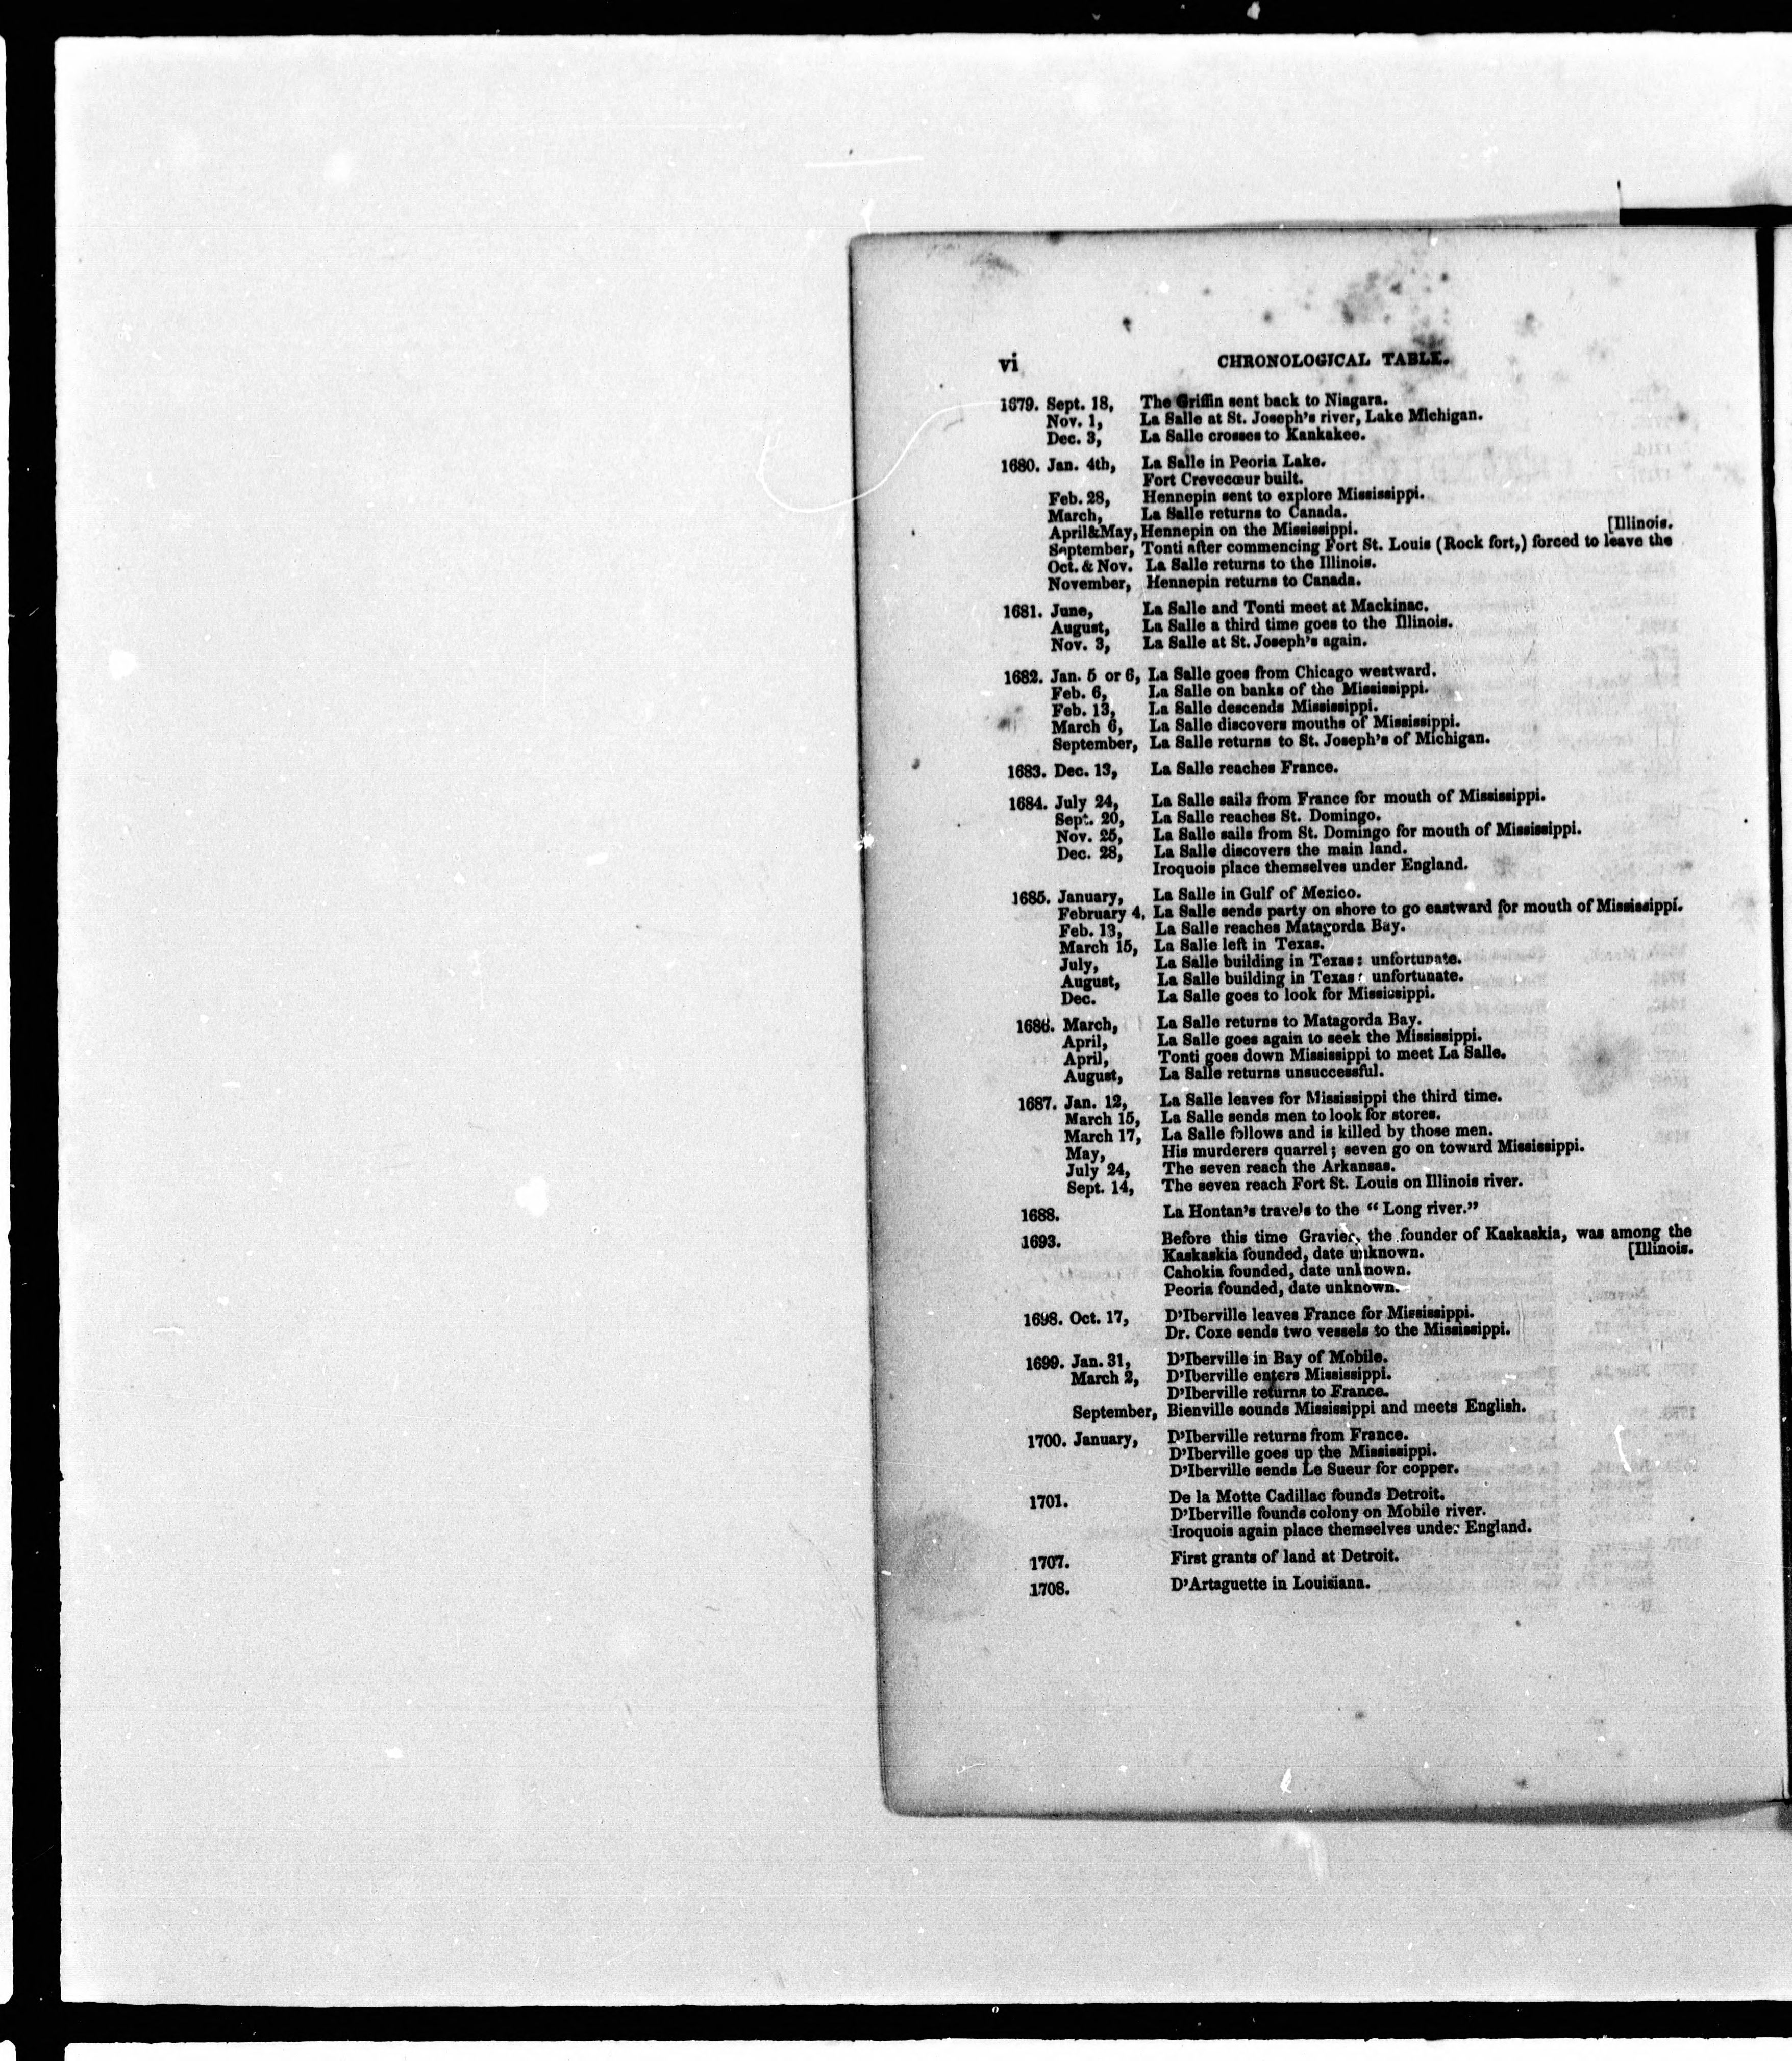 vi CHRONOLOGICAL TABLE.
1679. Sept. 18, The Griffin sent back to Niagara.
Nov. 1, La Salle at St. Joseph's river, Lake Michigan.
Dec. 3, La Salle crosses to Kankakee.
1680. Jan. 4th, La Salle in Peoria Lake.
Fort Crevecœur built.
Feb. 28, Hennepin sent to explore Mississippi.
March, La Salle returns to Canada.
April&May, Hennepin on the Mississippi. [Illinois.
September, Tonti after commencing Fort St. Louis (Rock fort,) forced to leave the
Oct. & Nov. La Salle returns to the Illinois.
November, Hennepin returns to Canada.
1681. June, La Salle and Tonti meet at Mackinac.
August, La Salle a third time goes to the Illinois.
Nov. 3, La Salle at St. Joseph's again.
1682. Jan. 5 or 6, La Salle goes from Chicago westward.
Feb. 6, La Salle on banks of the Mississippi.
Feb. 13, La Salle descends Mississippi.
March 6, La Salle discovers mouths of Mississippi.
September, La Salle returns to St. Joseph's of Michigan.
1683. Dec. 13, La Salle reaches France.
1684. July 24, La Salle sails from France for mouth of Mississippi.
Sept. 20, La Salle reaches St. Domingo.
Nov. 25, La Salle sails from St. Domingo for mouth of Mississippi.
Dec. 28, La Salle discovers the main land.
Iroquois place themselves under England.
1685. January, La Salle in Gulf of Mexico.
February 4, La Salle sends party on shore to go eastward for mouth of Mississippi.
Feb. 13, La Salle reaches Matagorda Bay.
March 15, La Salle left in Texas.
July, La Salle building in Texas: unfortunate.
August, La Salle building in Texas: unfortunate.
Dec. La Salle goes to look for Mississippi.
1686. March, La Salle returns to Matagorda Bay.
April, La Salle goes again to seek the Mississippi.
April, Tonti goes down Mississippi to meet La Salle.
August, La Salle returns unsuccessful.
1687. Jan. 12, La Salle leaves for Mississippi the third time.
March 15, La Salle sends men to look for stores.
March 17, La Salle follows and is killed by those men.
May, His murderers quarrel; seven go on toward Mississippi.
July 24, The seven reach the Arkansas.
Sept. 14, The seven reach Fort St. Louis on Illinois river.
1688. La Hontan's travels to the "Long river."
1693. Before this time Gravier, the founder of Kaskaskia, was among the
Kaskaskia founded, date unknown. [Illinois.
Cahokia founded, date unknown.
Peoria founded, date unknown.
1698. Oct. 17, D'Iberville leaves France for Mississippi.
Dr. Coxe sends two vessels to the Mississippi.
1699. Jan. 31, D'Iberville in Bay of Mobile.
March 2, D'Iberville enters Mississippi.
D'Iberville returns to France.
September, Bienville sounds Mississippi and meets English.
1700. January, D'Iberville returns from France.
D'Iberville goes up the Mississippi.
D'Iberville sends Le Sueur for copper.
1701. De la Motte Cadillac founds Detroit.
D'Iberville founds colony on Mobile river.
Iroquois again place themselves under England.
1707. First grants of land at Detroit.
1708. D'Artaguette in Louisiana.